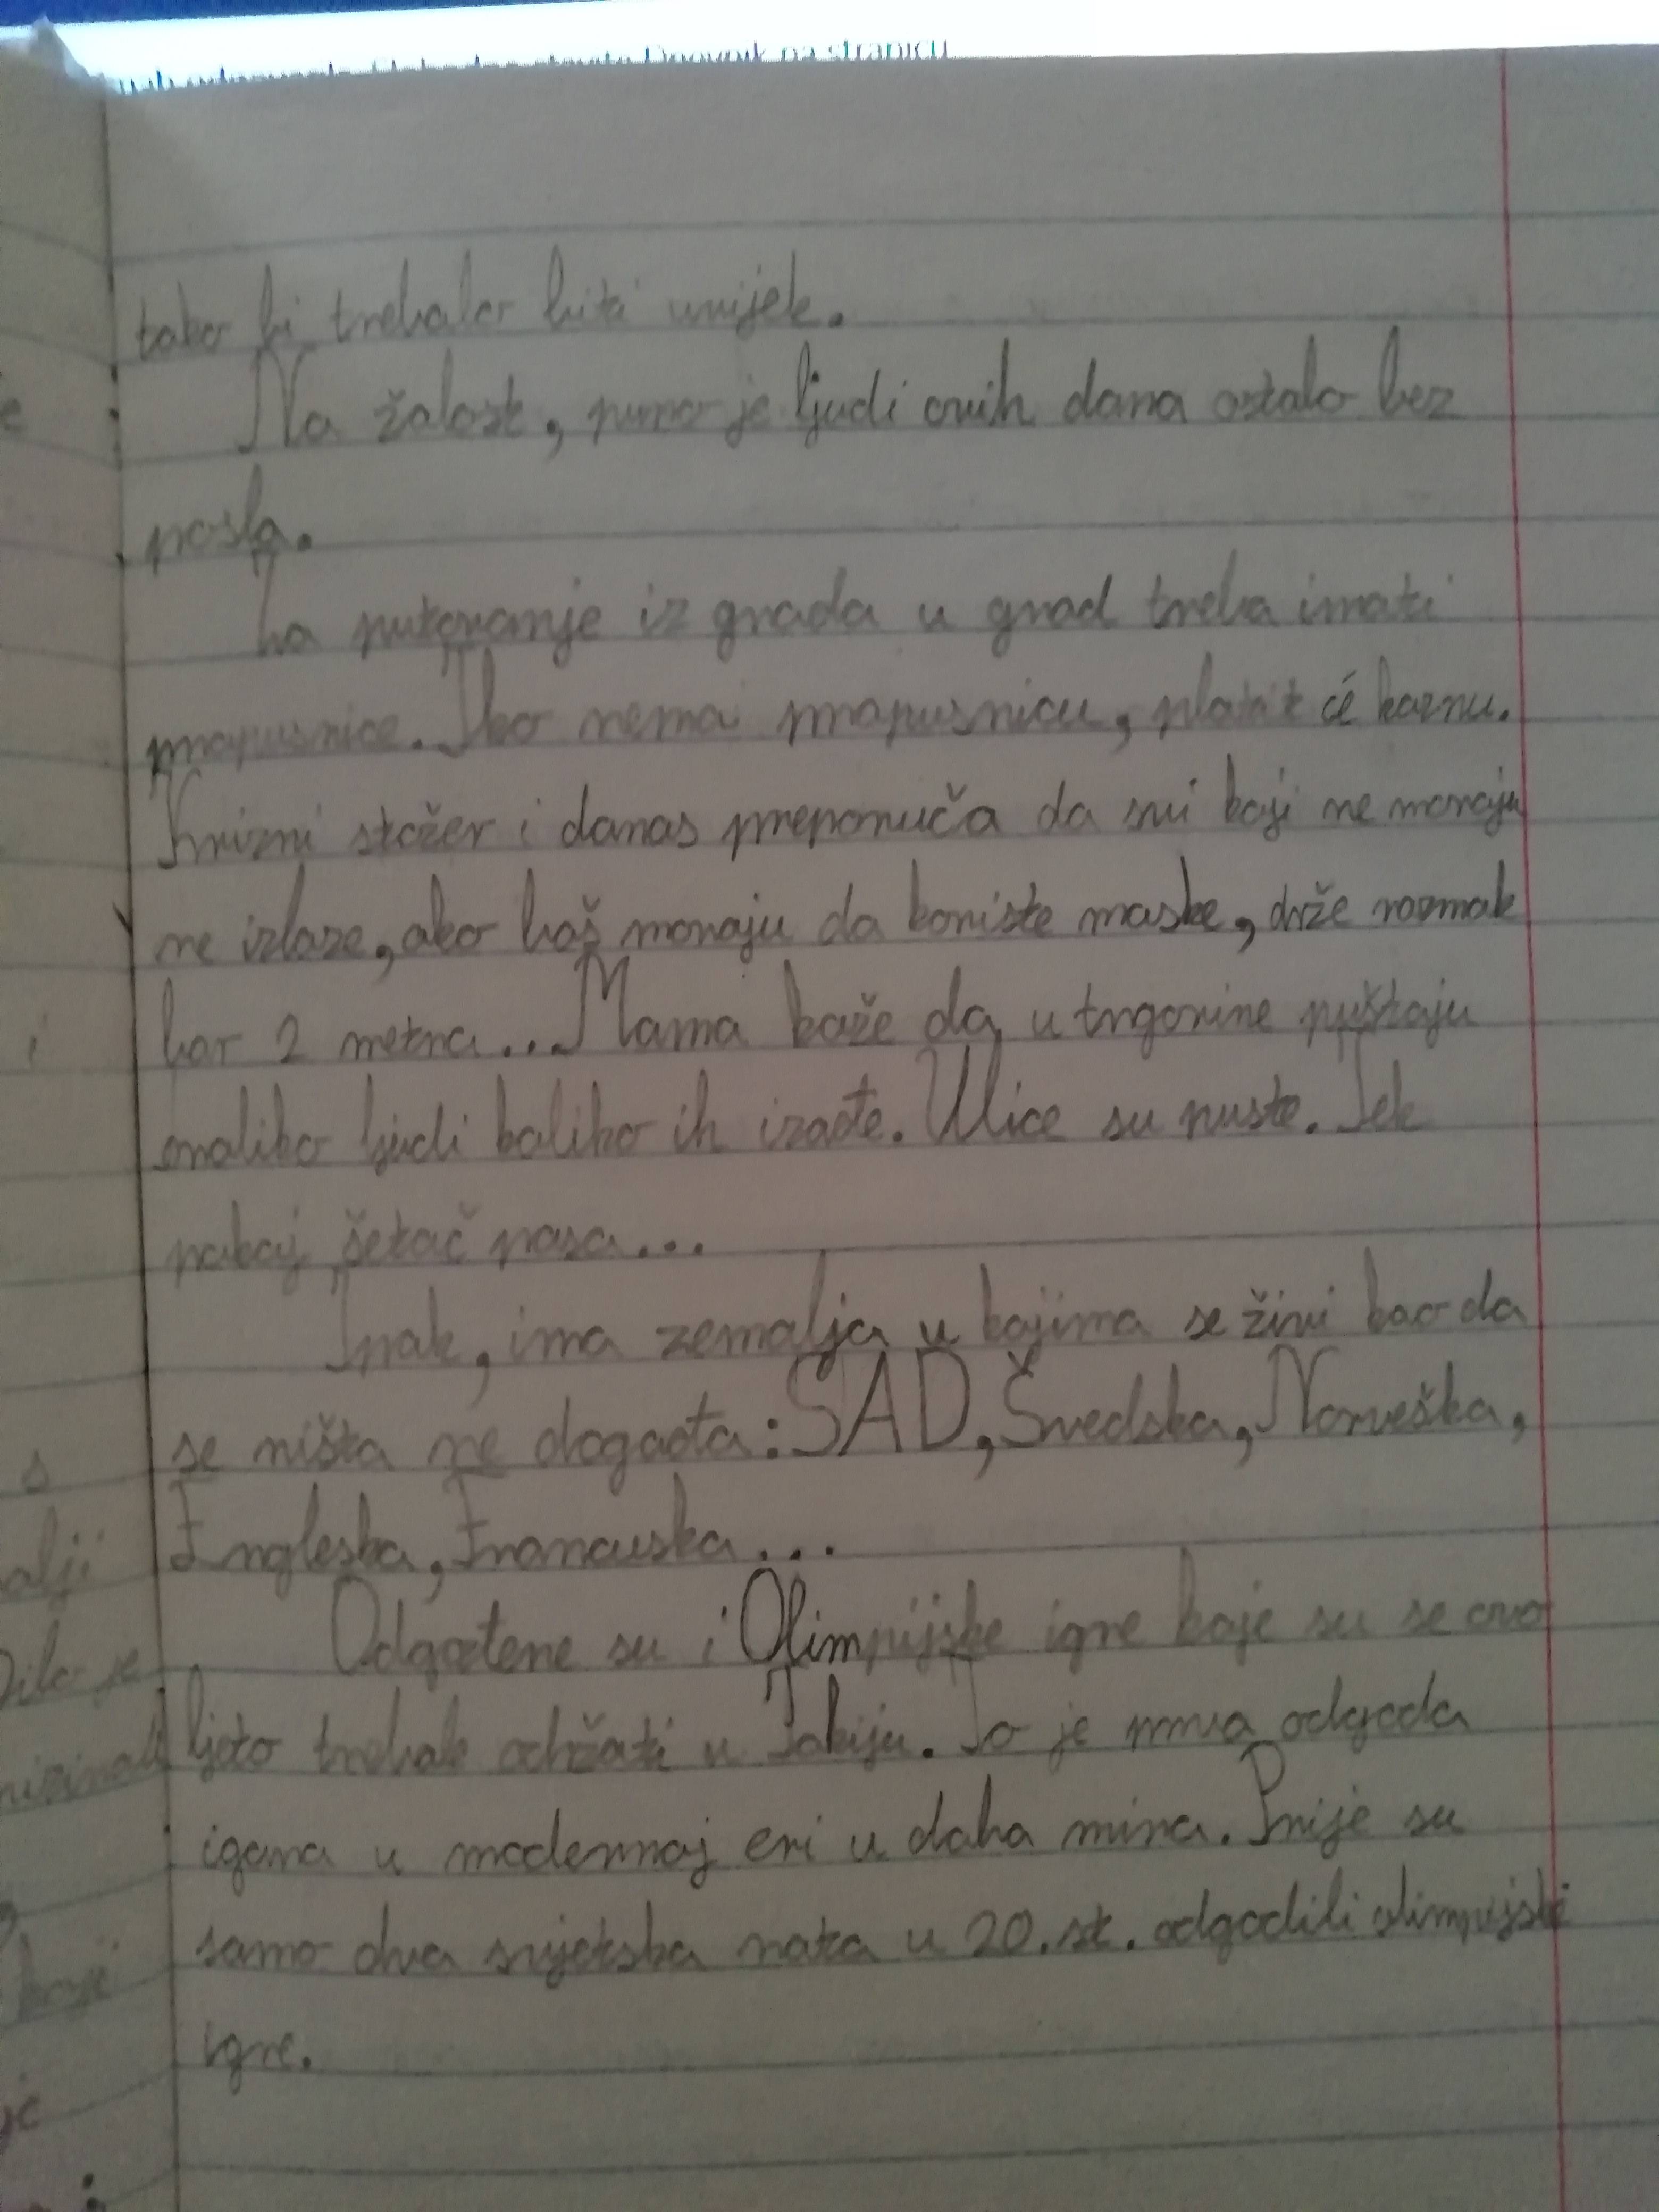 Dnevnik na stranicu
tako bi trebalo biti uvijek.
Na žalost, puno je ljudi ovih dana ostalo bez
posla.
Za putovanje iz grada u grad treba imati
propusnice. Tko nema propusnicu, platit će kaznu.
Krizni stožer i danas preporuča da svi koji ne moraju
ne izlaze, ako baš moraju da koriste maske, drže razmak
bar 2 metra... Mama kaže da u trgovine puštaju
onoliko ljudi koliko ih izađe. Ulice su puste. Tek
pokoj šetač pasa...
Ipak, ima zemalja u kojima se živi kao da
se ništa ne događa: SAD, Švedska, Norveška,
Engleska, Francuska...
Odgođene su i Olimpijske igre koje su se ovo
ljeto trebale održati u Tokiju. To je prva odgoda
igara u modernoj eri u doba mira. Prije su
samo dva svjetska rata u 20. st. odgodili olimpijske
igre.